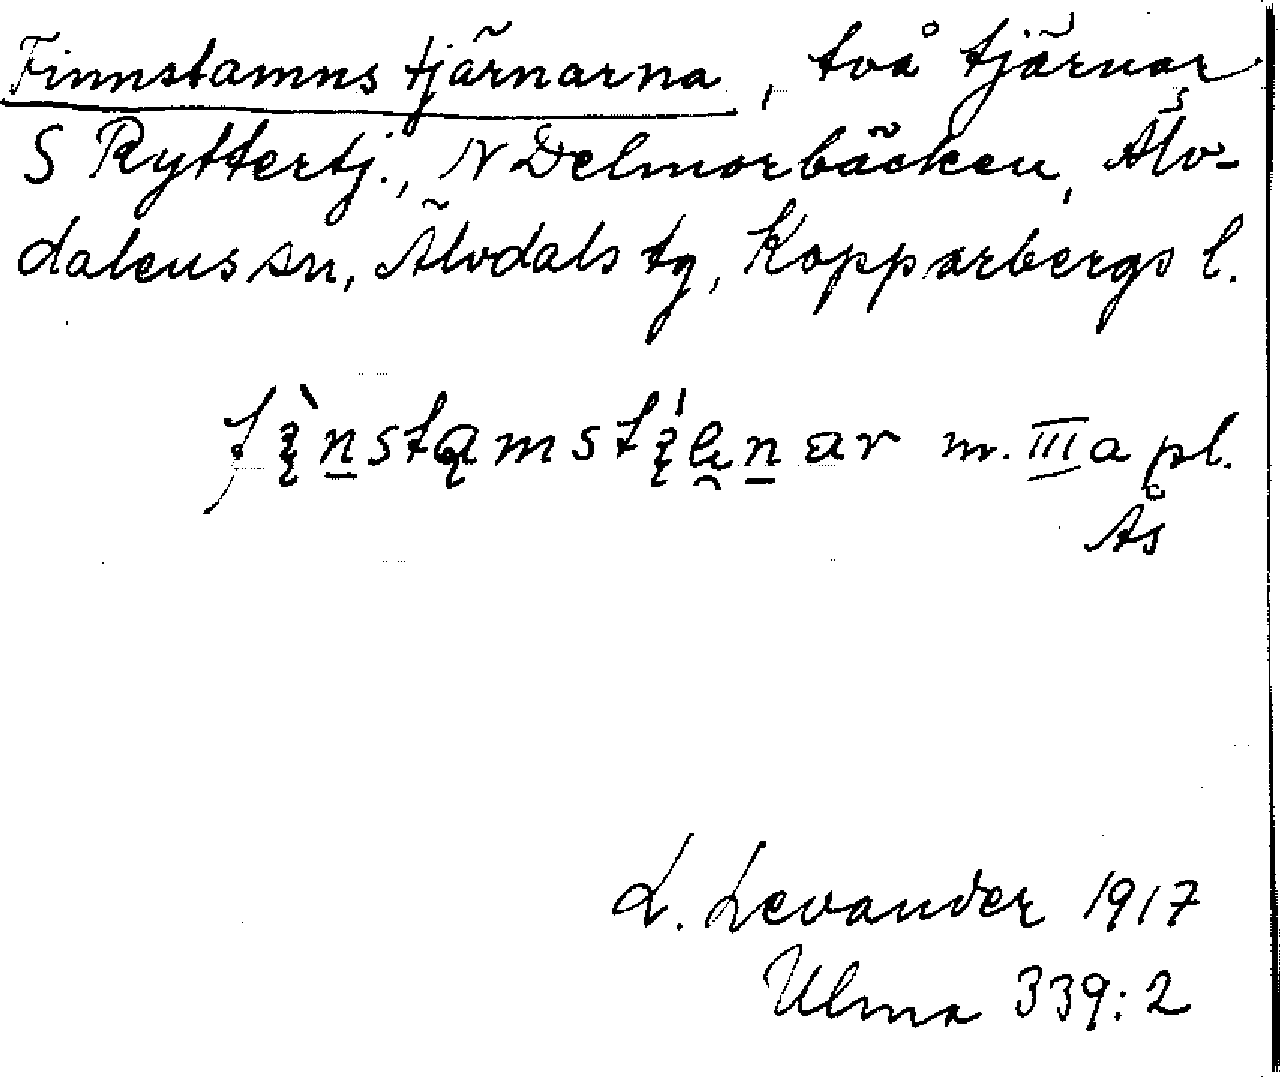 Finnstamns tjärnarna, två tjärnar
S Ryttertj., N Delmorbäcken, Älv-
dalens sn, Älvdals tg, Kopparbergs l.
m. III a pl.
Ås
L. Levander 1917
Ulma 339:2